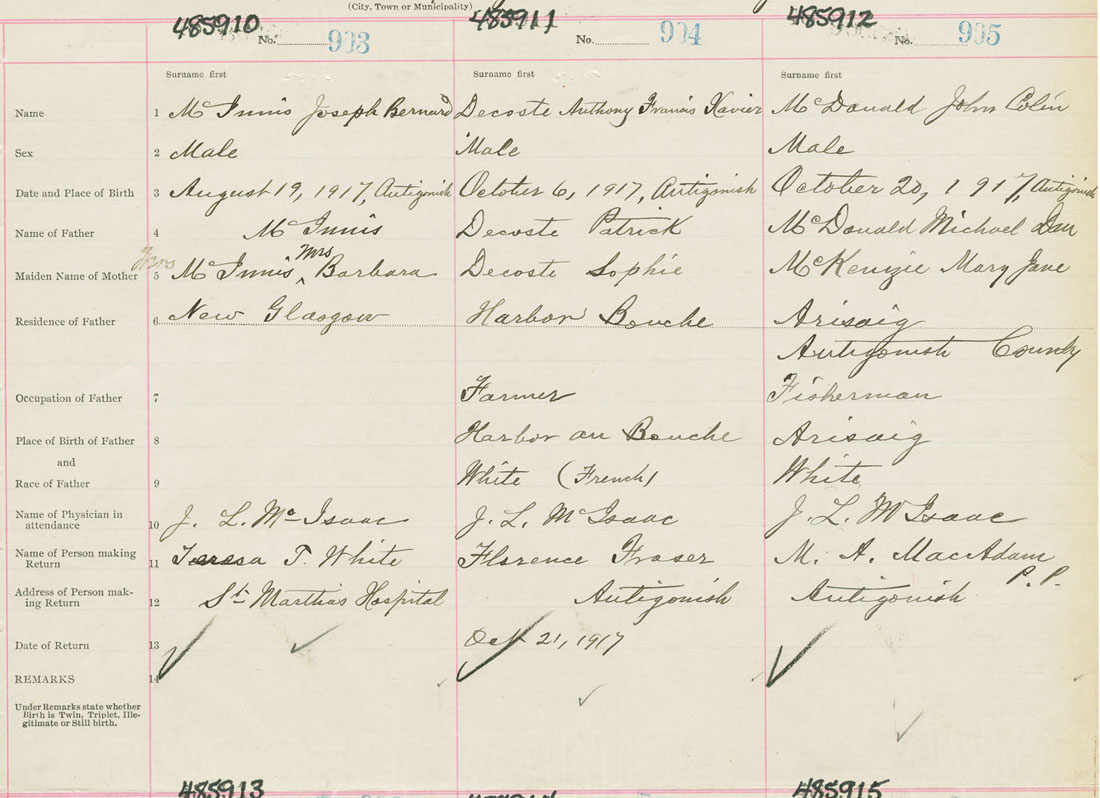 (City, Town or Municipality)
485910 485911 485912
No. 903 No. 904 No. 905
Surname first Surname first Surname first
Name 1 McInnis Joseph Bernard Decoste Anthony Francis Xavier McDonald John Colin
Sex 2 Male Male Male
Date and Place of Birth 3 August 19, 1917, Antigonish October 6, 1917, Antigonish October 20, 1917, Antigonish
Name of Father 4 McInnis Decoste Patrick McDonald Michael Dan
Mrs Mrs
Maiden Name of Mother 5 McInnis ^ Barbara Decoste Sophie McKenzie Mary Jane
Residence of Father 6 New Glasgow Harbor Bouche Arisaig
Antigonish County
Occupation of Father 7 Farmer Fisherman
Place of Birth of Father 8 Harbor au Bouche Arisaig
and
Race of Father 9 White (French) White
Name of Physician in
attendance 10 J. L. McIsaac J. L. McIsaac J. L. McIsaac
Name of Person making
Return 11 Teresa T. White Florence Fraser M. A. MacAdam
P. P.
Address of Person mak-
ing Return 12 St. Martha's Hospital Antigonish Antigonish
Date of Return 13 Oct 21, 1917
REMARKS 14
Under Remarks state whether
Birth is Twin, Triplet, Ille-
gitimate or Still birth.
485913 485915